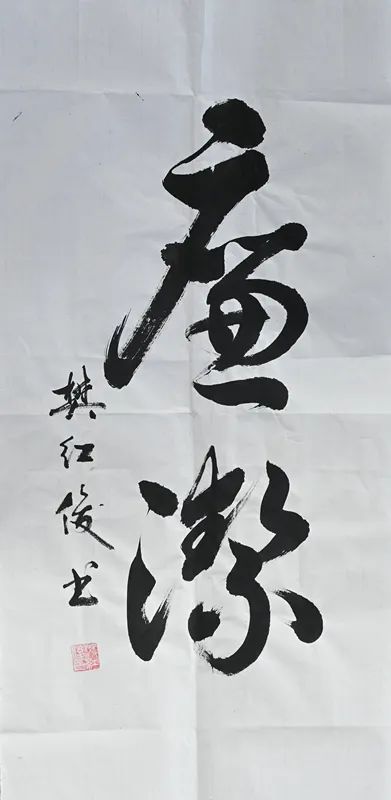 廉潔
樊红俊书